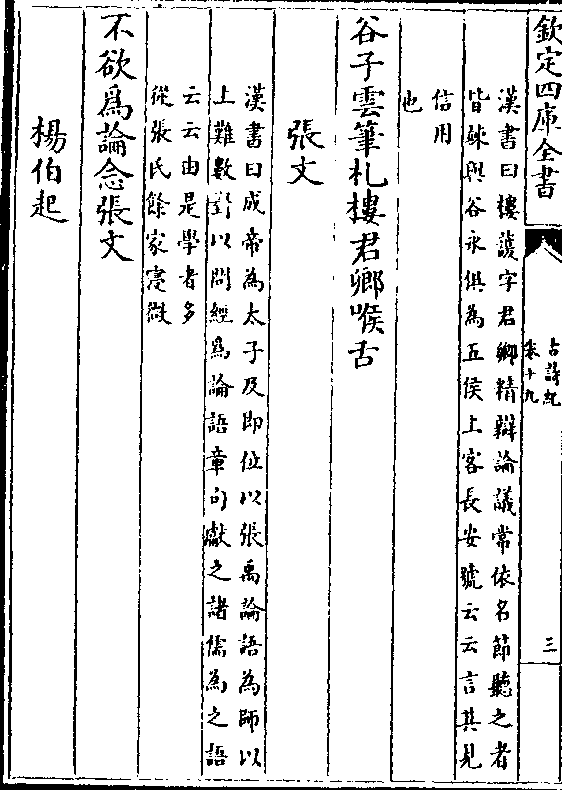 欽定四庫全書
古詩紀
卷十九
三
漢書曰樓護字君卿精辯論議常依名節聽之者
皆竦與谷永俱為五侯上客長安號云云言其見
信用
也
谷子雲筆札樓君卿喉舌
張文
漢書曰成帝為太子及即位以張禹論語為師以
上難數對以問經為論語章句獻之諸儒為之語
云云由是學者多
從張氏餘家寖微
不欲為論念張文
楊伯起